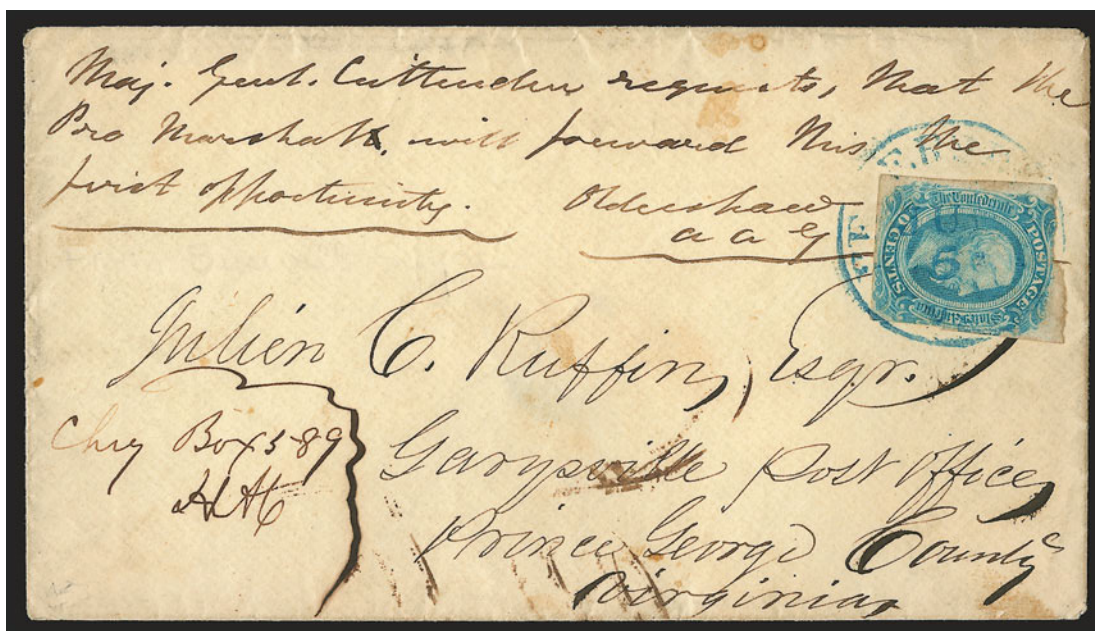 Maj. Genl. Crittenden requests, that the
Pro Marshall, will forward this the
first opportunity.
Oldershaw
a a G
The Confederate
States of America
POSTAGE
CENTS
Julien C. Ruffin, Esqr.
Chg Box 589
Garysville Post Office,
Prince George County
Virginia,